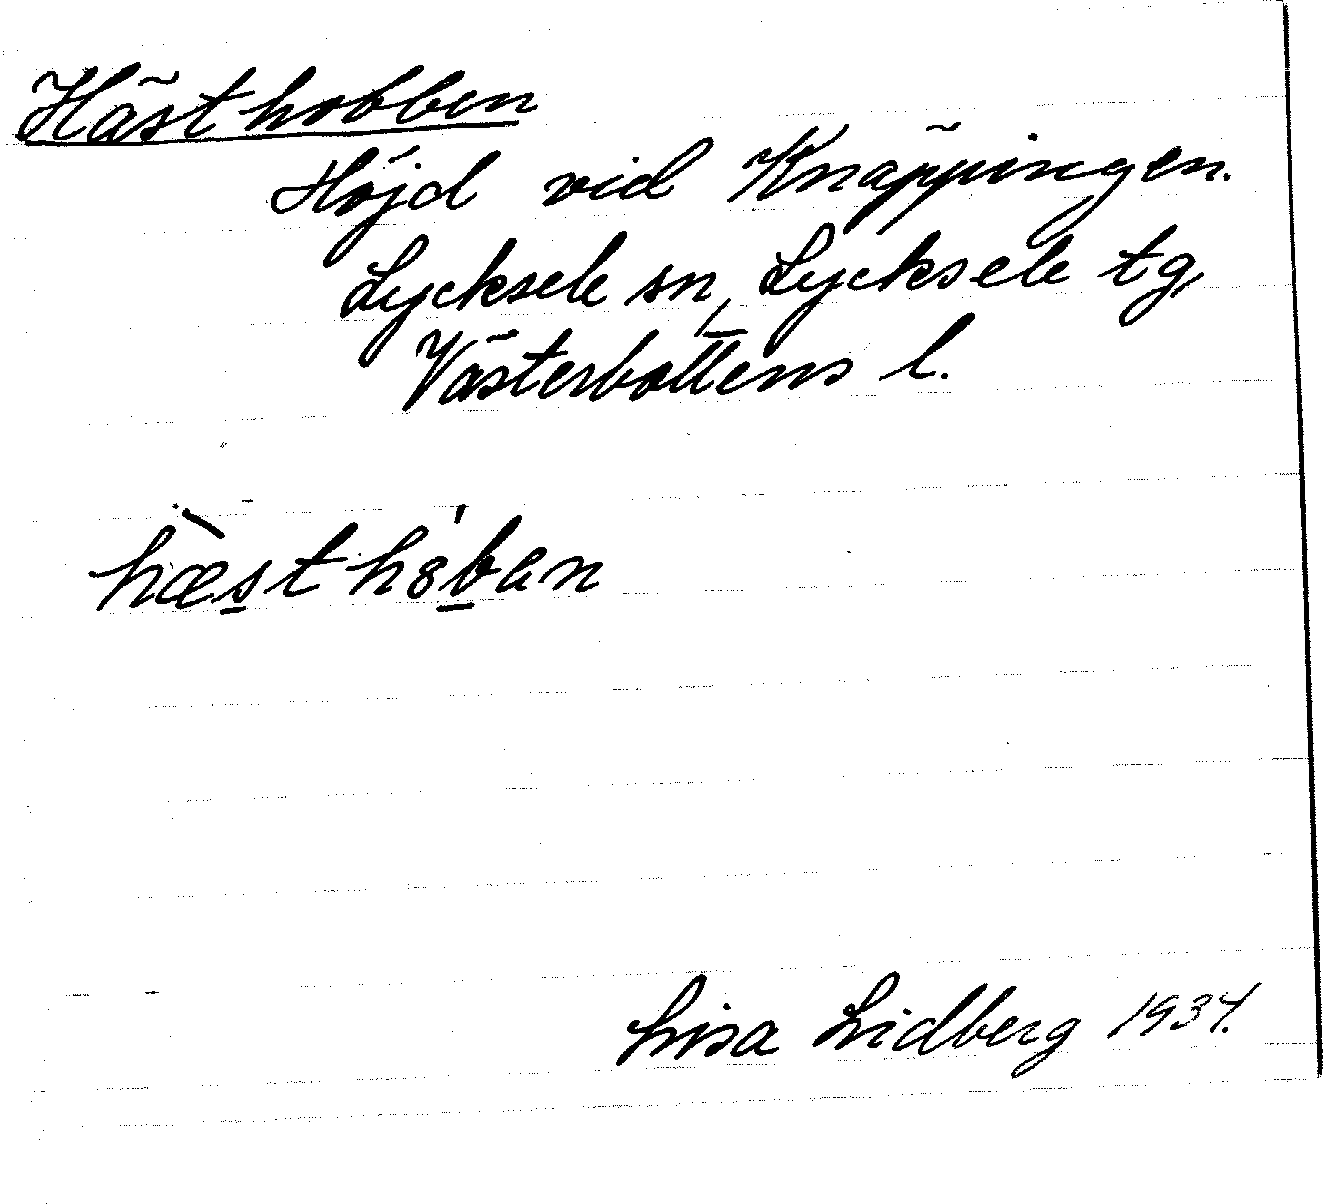 Hästhobben
Höjd vid Knäppingen.
Lycksele sn, Lycksele tg,
Västerbottens l.
hæ̀sthȯban
Lisa Lidberg 1934.